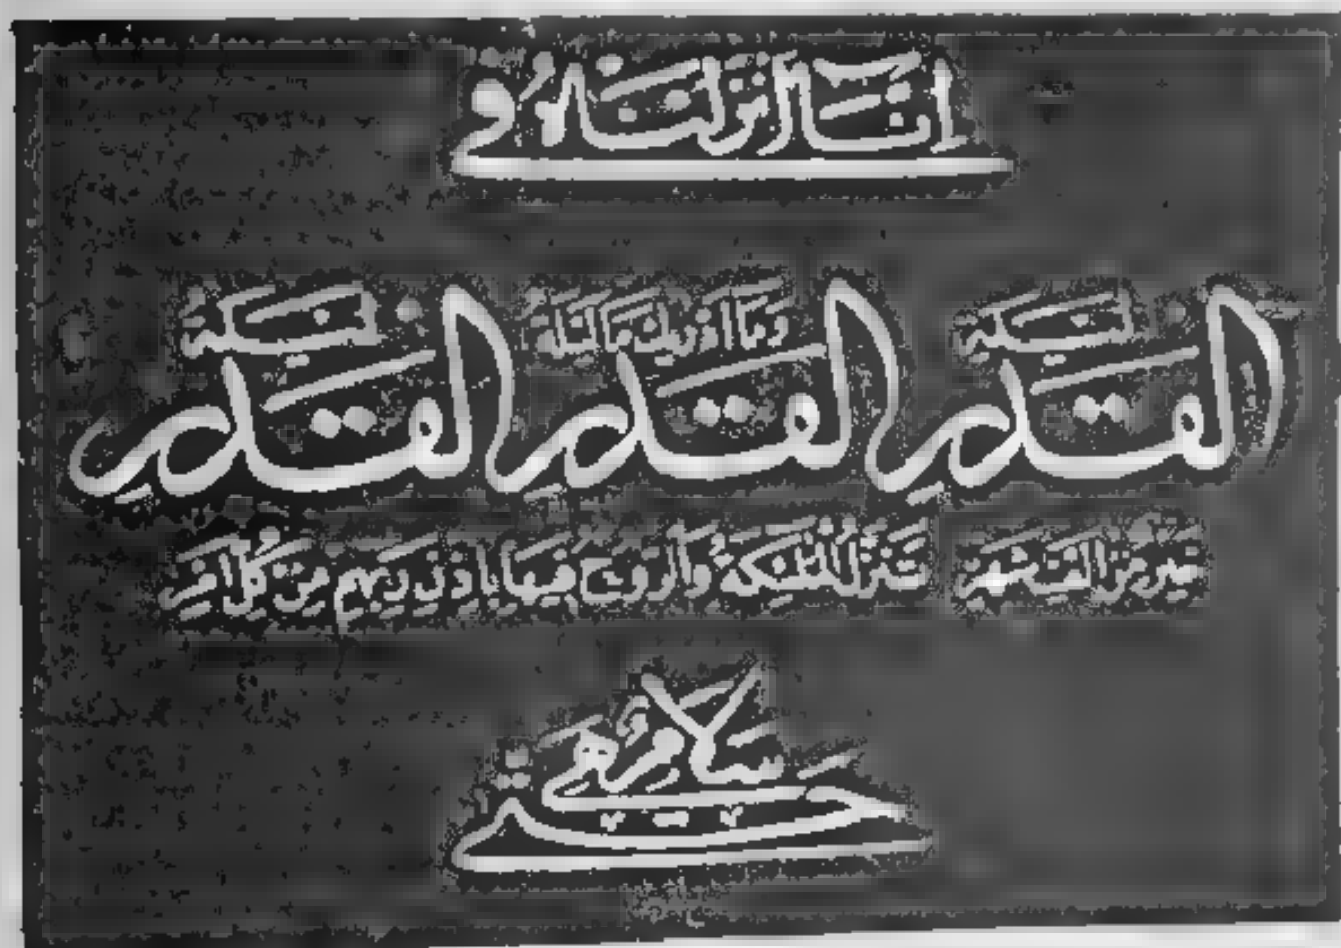 انا انزلناه في
ليلة القدر وما ادريك ما ليلة القدر ليلة القدر
خير من الف شهر تنزل الملئكة والروح فيها باذن ربهم من كل امر
سلام هي
حتى